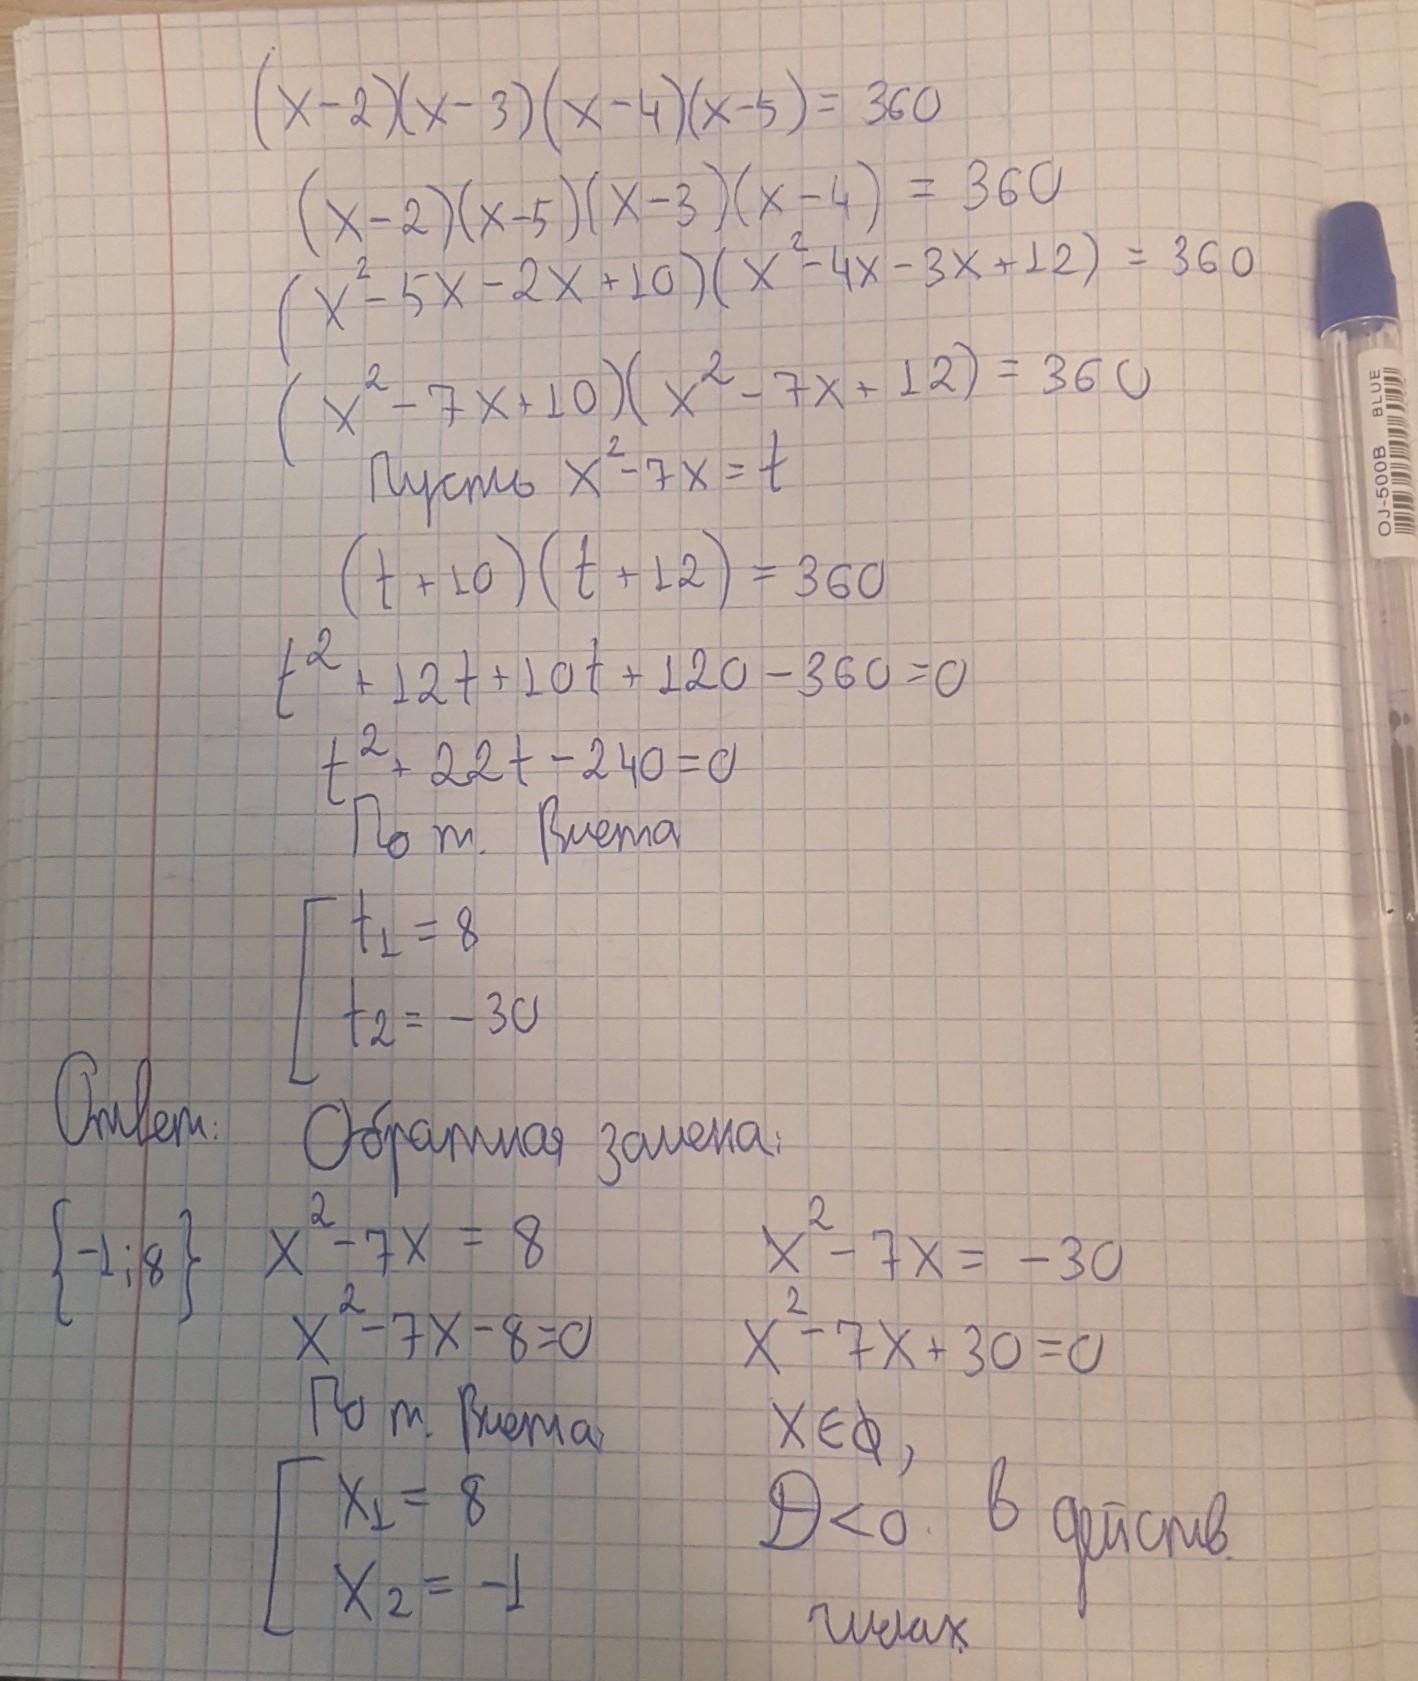 (x-2)(x-3)(x-4)(x-5)=360
(x-2)(x-5)(x-3)(x-4) = 360
(x²-5x-2x+10)(x²-4x-3x+12) = 360
(x²-7x+10)(x²-7x+12) = 360
Пусть x²-7x=t
(t+10)(t+12) = 360
t²+12t+10t+120-360=0
t²+22t-240=0
По т. Виета
[ t₁ = 8
t₂ = -30
Ответ: Обратная замена:
{-1;8} x²-7x = 8 x²-7x = -30
x²-7x-8=0 x²-7x+30=0
По т. Виета x∈ϕ,
[ x₁ = 8 D<0. в действ.
x₂ = -1 числах
OJ-500B BLUE